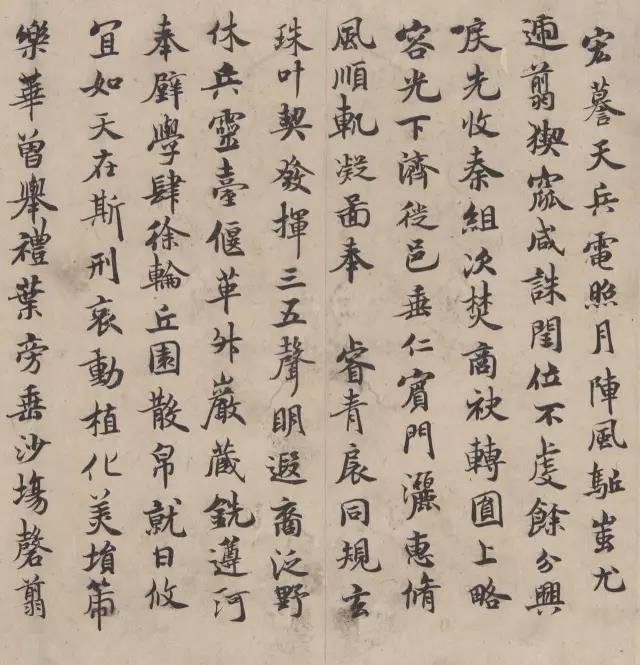 宏謩天兵電照月陣風駈蚩尤
遄翦猰窳咸誅閏位不虔餘分興
唳先收秦組次焚商袂轉圓上略
容光下濟徙邑垂仁賓門灑惠脩
風順軌凝啚奉 睿青扆同規玄
珠叶契發揮三五聲明遐裔泛野
休兵靈臺偃革外巖藏銑遵河
奉璧學肆徐輪丘園散帛就日攸
宜如天在斯刑哀動植化美
樂華曽舉禮葉旁垂沙塲罄翦